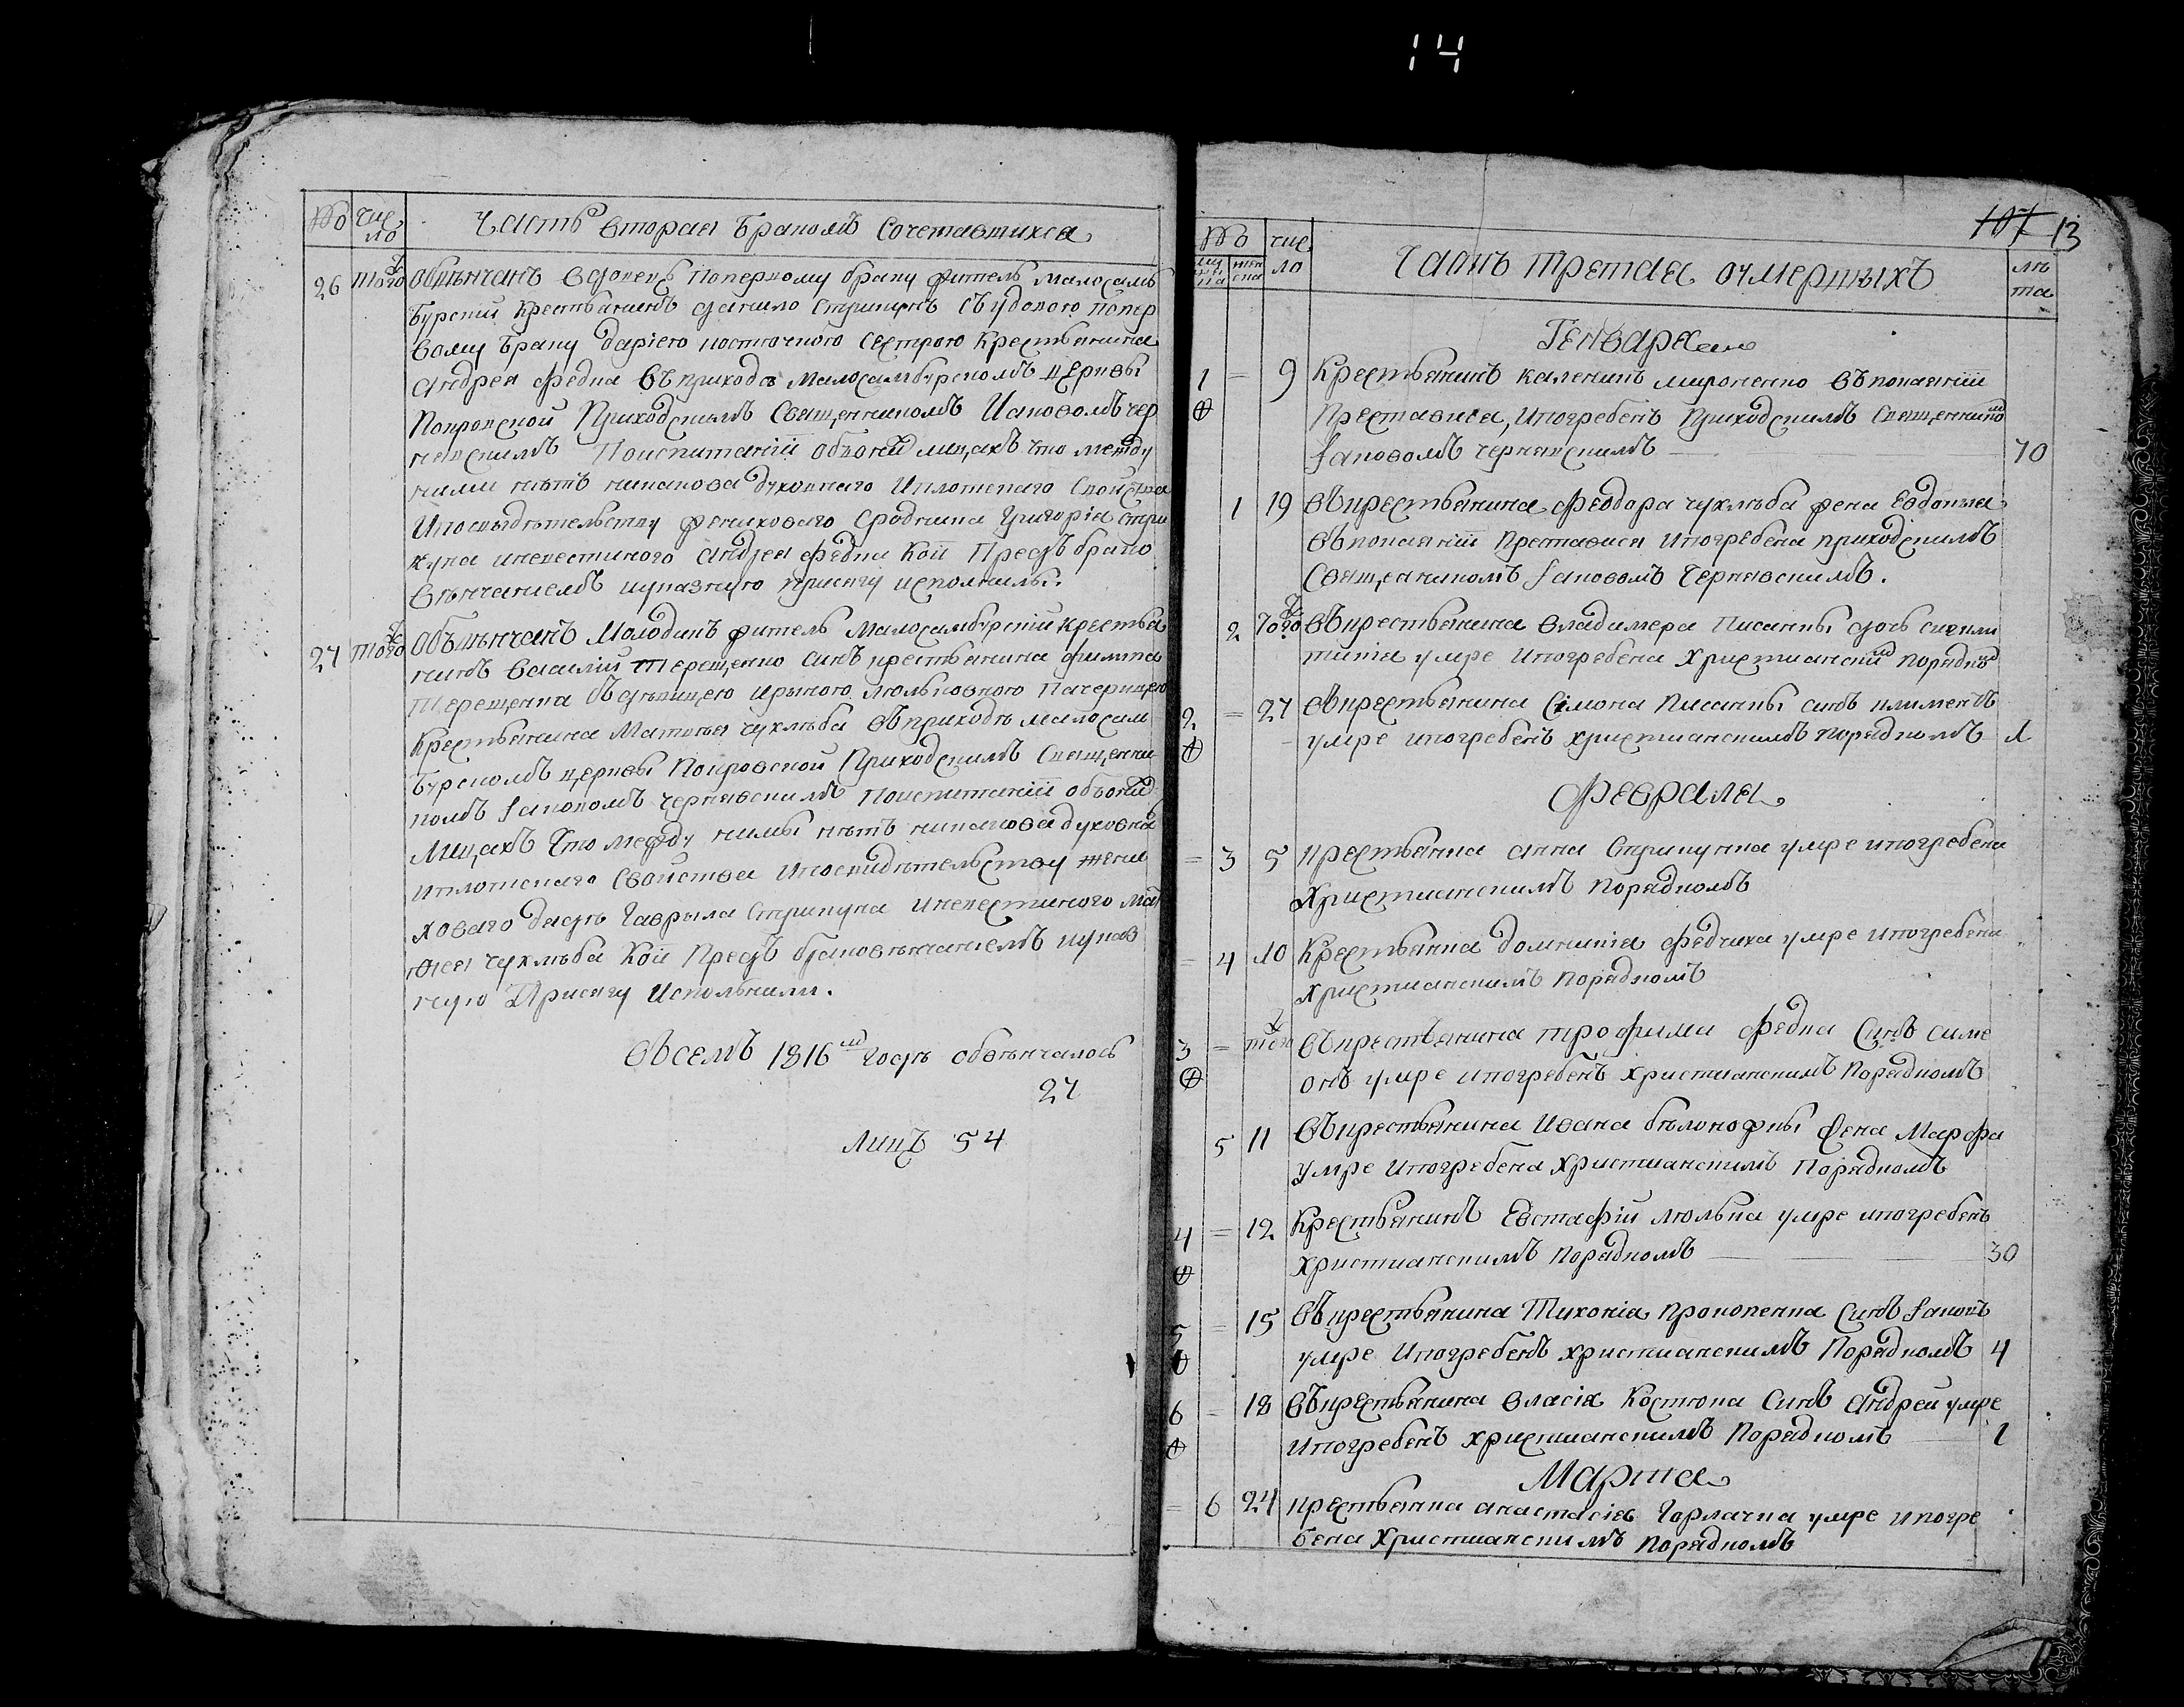 14
№ Число Часть вторая Бракомъ Сочетавшихся
26 тогож Обвѣнчанъ Вдовецъ Попервому браку житель Малосам
бурский Крестьянинъ данило Стрикунъ Съ удовою попер
вому браку дариею Сестрою Крестьянина
Андрея Федка Въ приходѣ Малосамбурскомъ церквы
Покровской Приходскимъ Священникомъ Иаковомъ Чер
невскимъ Поиспитаніи обпоюд лицахъ что между
ними нѣтъ никакова духовнаго Иплотскаго Свойства
Ипосвыдѣтельству женихового Сродника Григорія Стри
куна иневестиного Андрея Федка Кои Предъ брако
вѣнчаніемъ иуказную присягу исполнилы.
27 тогож Обвѣнчанъ Молодикъ житель Малосамбурскій крестья
нинъ Василий Терещенко Синъ крестьянина филипа
Терещенка Съ дѣвицею Ириною Люльковною Пачерицею
Крестьянина Матвѣя чухлѣба Въ приходѣ малосам
бурскомъ церквы Покровской Приходскимъ Священни
комъ Іаковомъ чернявскимъ Поиспитаніи обпоюд
лицахъ Что между нимы нѣтъ никакова духовна
иплотскаго Свойства Ипосвидѣтельству жени
хового дяди Гаврыла Стрикуна Иневестиного Мат
ѳея чухлѣба Кои Предъ браковѣнчаніемъ иуказ
ную Присягу Исполънили.
Всемъ 1816м Годѣ обвѣнчалось
27
Лицъ 54
107 13
№ число Часть третая оумершыхъ лѣта
Генваря
1 = 9 Крестьянинъ каленикъ мироненко въ покаяніи
Преставися, Ипогребенъ Приходскимъ Священником
Іаковомъ чернявскимъ 70
1 19 въкрестьянина феодора чухлѣба жена Евдокия
въ покаяніи Преставися Ипогребена приходскимъ
Священикомъ Іаковомъ Чернявскимъ.
2 Тогож въкрестьянина владимера Писанкы дочь
умре Ипогребена Христианским порядком
2 = 27 въкрестьянина Симона Писанкы синъ климентъ
умре ипогребенъ христианскимъ порядкомъ 1
Февраля
= 3 5 крестьянка анна Стрикунка умре ипогребена
Христианскимъ порядкомъ
= 4 10 Крестьянка домникия федчиха умре ипогребена
Христианскимъ порядкомъ
3 = тогож въкрестьянина трофима Федка Синъ симе
онъ умре ипогребенъ христианскимъ порядкомъ
5 11 въкрестьянина Ивана бѣлоножкы жена Марфа
умре ипогребена христианскимъ Порядкомъ
4 = 12 Крестьянинъ Евстафій люлька умре ипогребенъ
христианскимъ порядкомъ 30
5 = 15 въкрестьянина Тихонія прокопенка Синъ Іаковъ
умре Ипогребенъ христианскимъ Порядкомъ 4
6 = 18 въкрестьянина власія Костюка Синъ Андрей умре
ипогребенъ христианскимъ Порядкомъ 1
Марта
= 6 24 крестьянка анастасія Горлачка умре ипогре
бена Христианскимъ порядкомъ